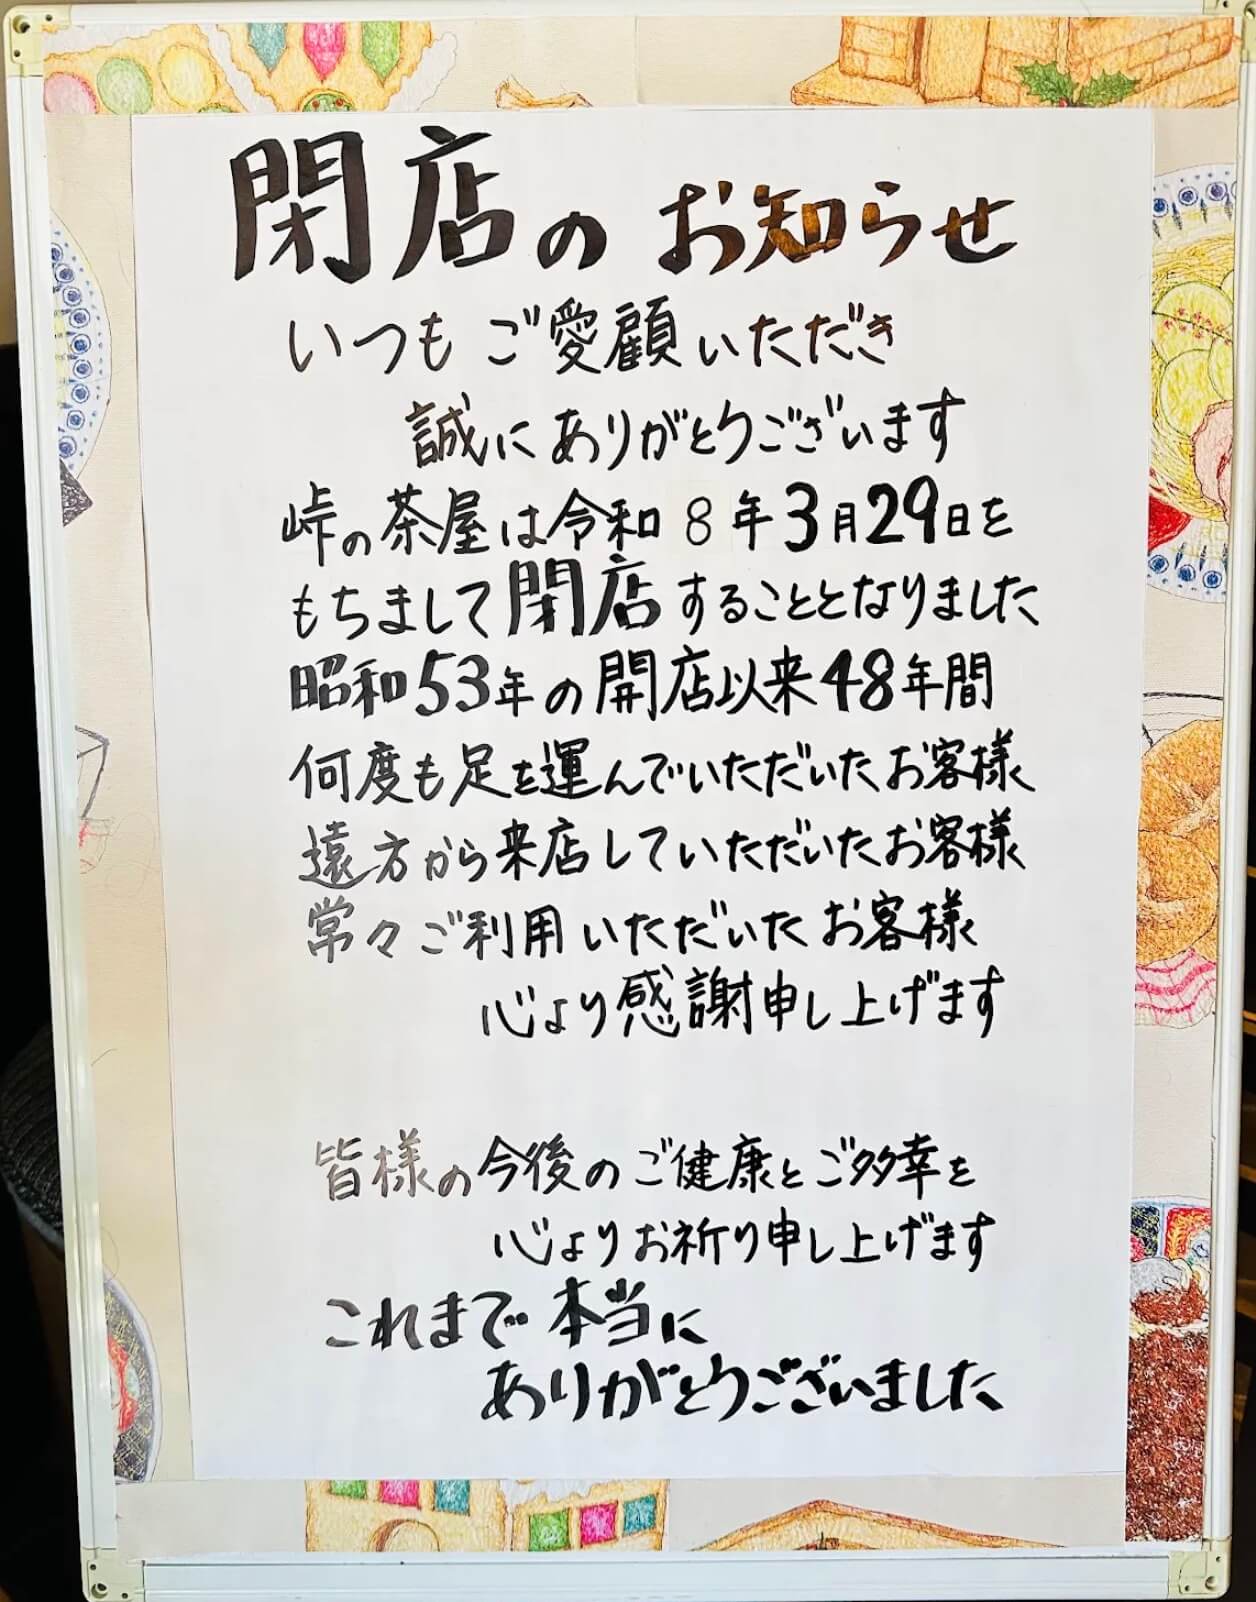 閉店のお知らせ
いつもご愛顧いただき
誠にありがとうございます
峠の茶屋は令和8年3月29日を
もちまして閉店することとなりました
昭和53年の開店以来48年間
何度も足を運んでいただいたお客様
遠方から来店していただいたお客様
常々ご利用いただいたお客様
心より感謝申し上げます
皆様の今後のご健康とご多幸を
心よりお祈り申し上げます
これまで本当に
ありがとうございました